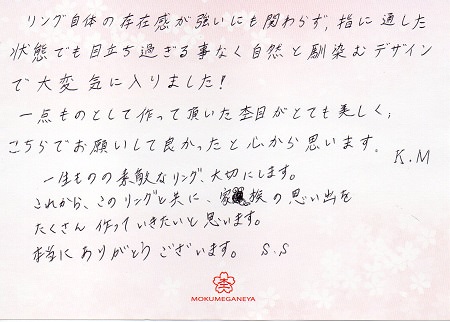 リング自体の存在感が強いにも関わらず、指に通した
状態でも目立ち過ぎる事なく自然と馴染むデザイン
で大変気に入りました!
一点ものとして作って頂いた杢目がとても美しく、
こちらでお願いして良かったと心から思います。
K.M
一生ものの素敵なリング、大切にします。
これから、このリングと共に、家族の思い出を
たくさん作っていきたいと思います。
本当にありがとうございます。 S.S
MOKUMEGANEYA